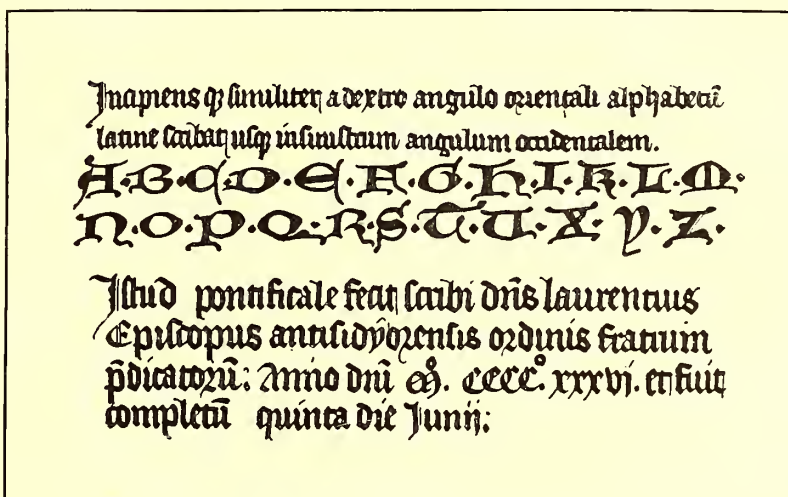 Incipiens qȝ similiter a dextro angulo orientali alphabetū
latine scribat usqȝ in sinistrum angulum occidentalem.
A·B·C·D·E·F·G·H·I·K·L·M·
N·O·P·Q·R·S·T·U·X·Y·Z·
Istud pontificale fecit scribi dn̄s laurentius
Episcopus antisiodorensis ordinis fratrum
p̄dicatorū: Anno dnī Mº. CCCCº. xxxvi. et fuit
completū quinta die Junij: